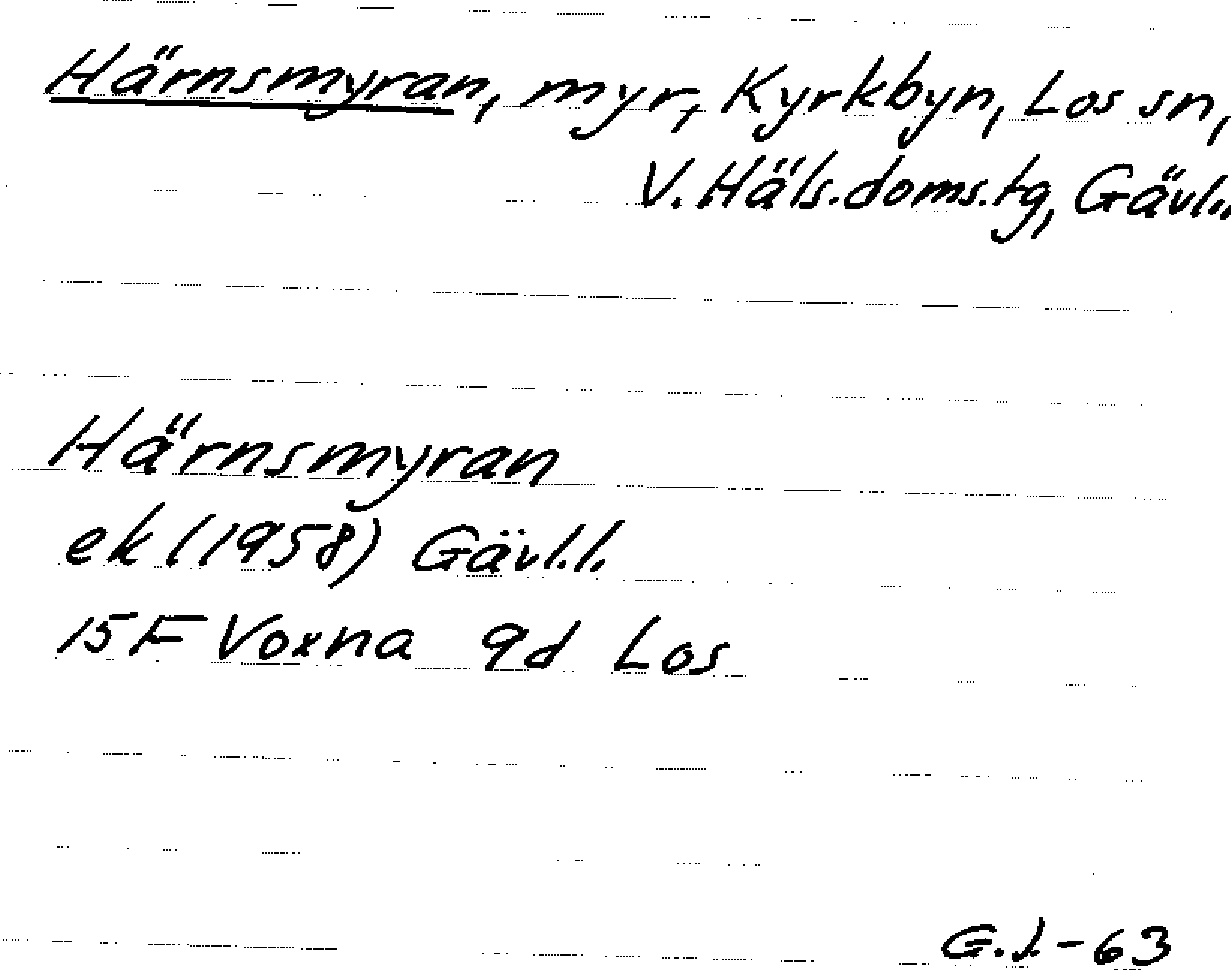 Härnsmyran, myr, Kyrkbyn, Los sn,
V. Häls. doms. tg, Gävl.l.
Härnsmyran
ek (1958) Gävl.l.
15 F Voxna 9d Los
G.J.-63